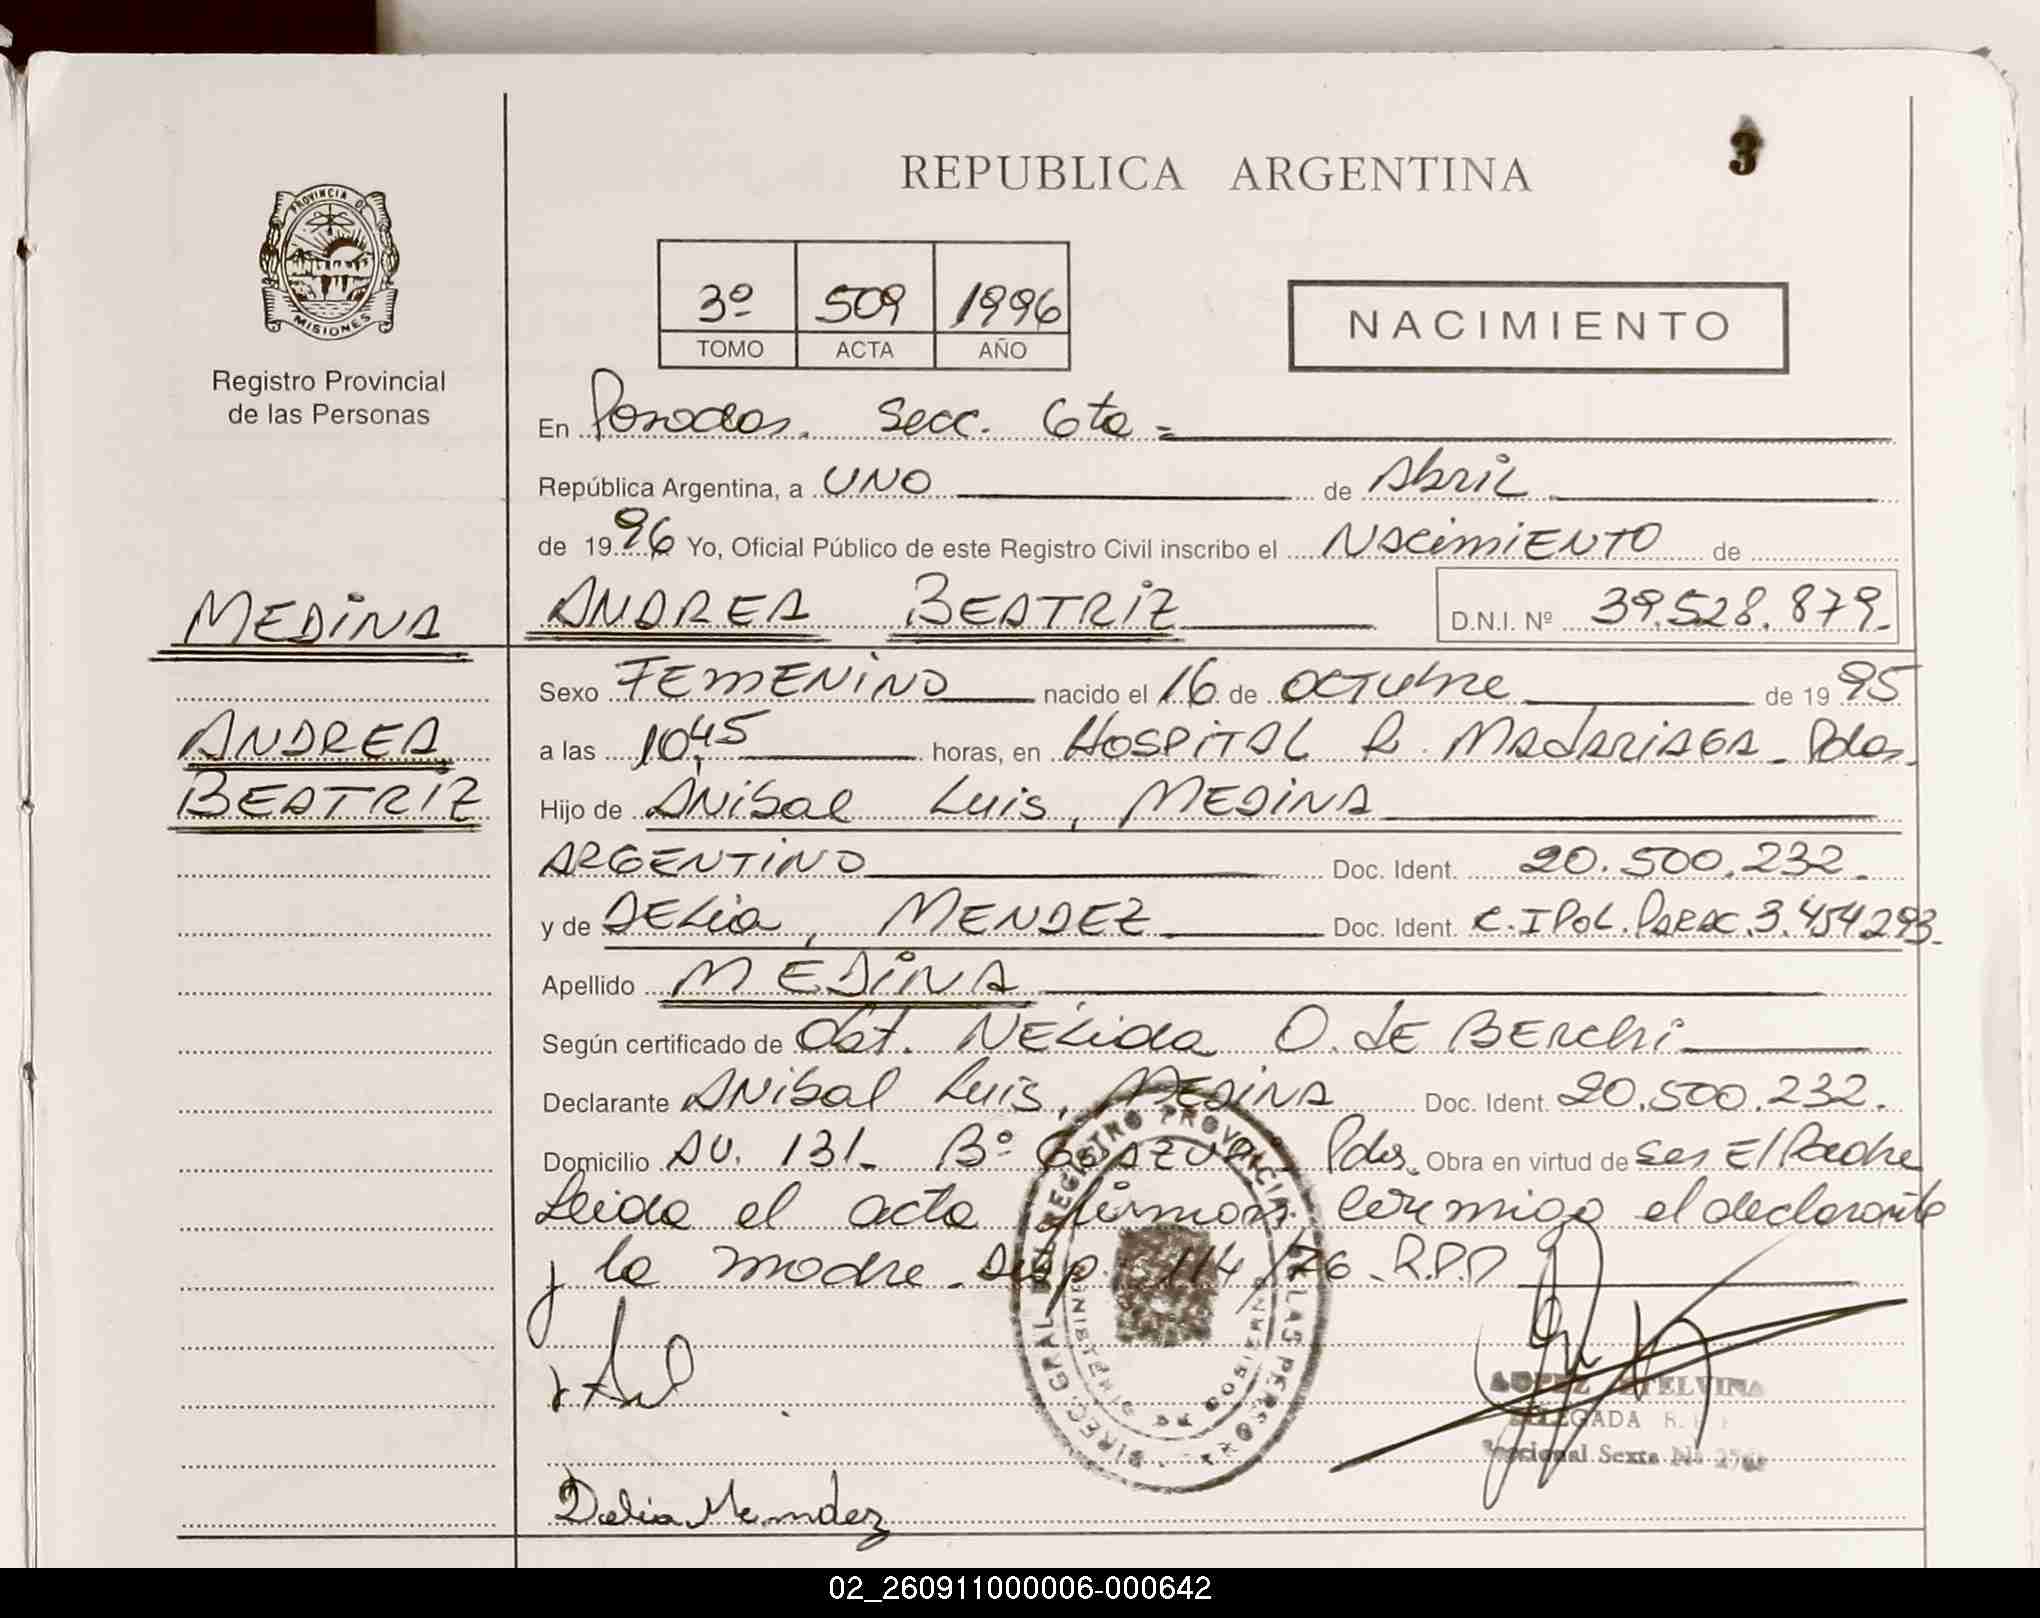 3
REPUBLICA ARGENTINA
PROVINCIA DE
MISIONES
Registro Provincial
de las Personas
3º 509 1996
TOMO ACTA AÑO
NACIMIENTO
En Posadas. Secc. 6ta =
República Argentina, a UNO de Abril
de 1996 Yo, Oficial Público de este Registro Civil inscribo el NACIMIENTO de
MEDINA ANDREA BEATRIZ D.N.I. Nº 39.528.879.-
Sexo FEMENINO nacido el 16 de OCTUBRE de 1995
ANDREA a las 10,45 horas, en HOSPITAL R. MADARIAGA - Pdas.
BEATRIZ Hijo de ANIBAL Luis, MEDINA
ARGENTINO Doc. Ident. 20.500.232.
y de DELIA, MENDEZ Doc. Ident. C.I Pol. PARAG. 3.454.293.
Apellido MEDINA
Según certificado de Obst. NELIDA O. de BERCHI
Declarante ANIBAL Luis, MEDINA Doc. Ident. 20.500.232.
Domicilio AV. 131 - Bº Pdas. Obra en virtud de ser El Padre
Leida el acta firman conmigo el declarante
y la madre. Disp. 114/76. R.P.P
DIREC. GRAL. DEL REGISTRO PROVINCIAL DE LAS PERSONAS
Delia Mendez
LOPEZ ETELVINA
DELEGADA R.
Seccional Sexta Nº
02_260911000006-000642